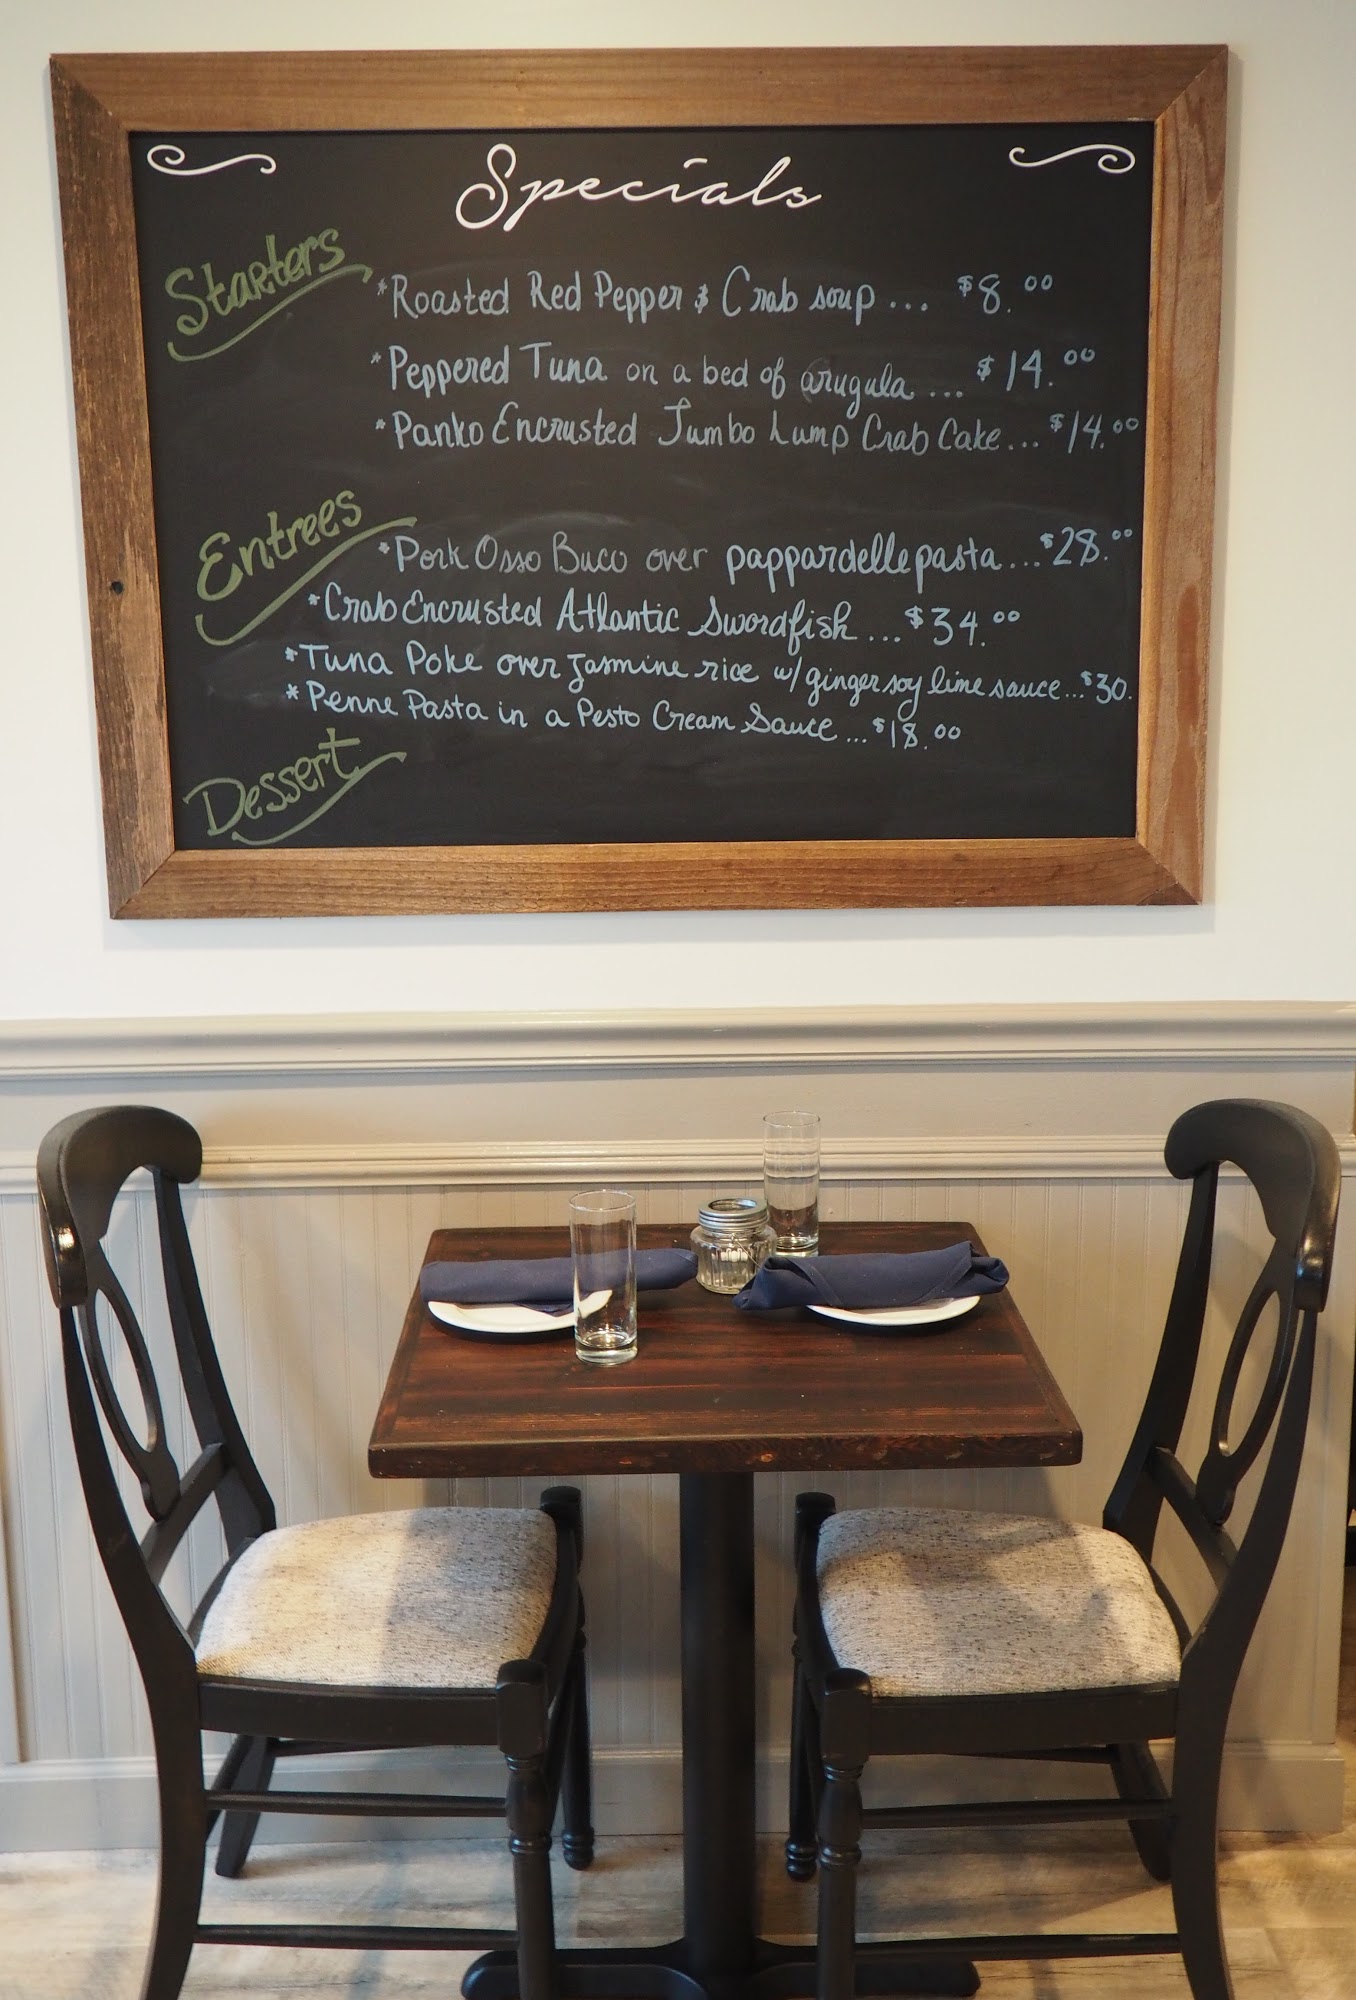 Specials
Starters
*Roasted Red Pepper & Crab soup ... $8.00
*Peppered Tuna on a bed of arugula ... $14.00
*Panko Encrusted Jumbo Lump Crab Cake... $14.00
Entrees
*Pork Osso Buco over pappardelle pasta ... $28.00
*Crab Encrusted Atlantic Swordfish ... $34.00
*Tuna Poke over Jasmine rice w/ ginger soy lime sauce ... $30.
*Penne Pasta in a Pesto Cream Sauce ... $18.00
Dessert